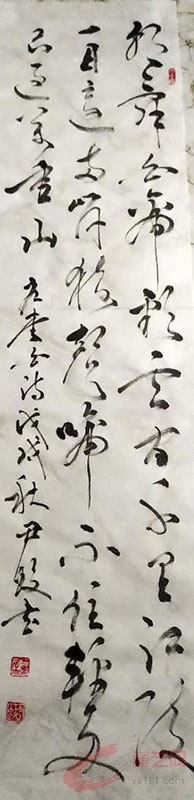 朝辞白帝彩云间千里江陵
一日还两岸猿声啼不住轻舟
已过万重山 白诗戊戌秋尹书